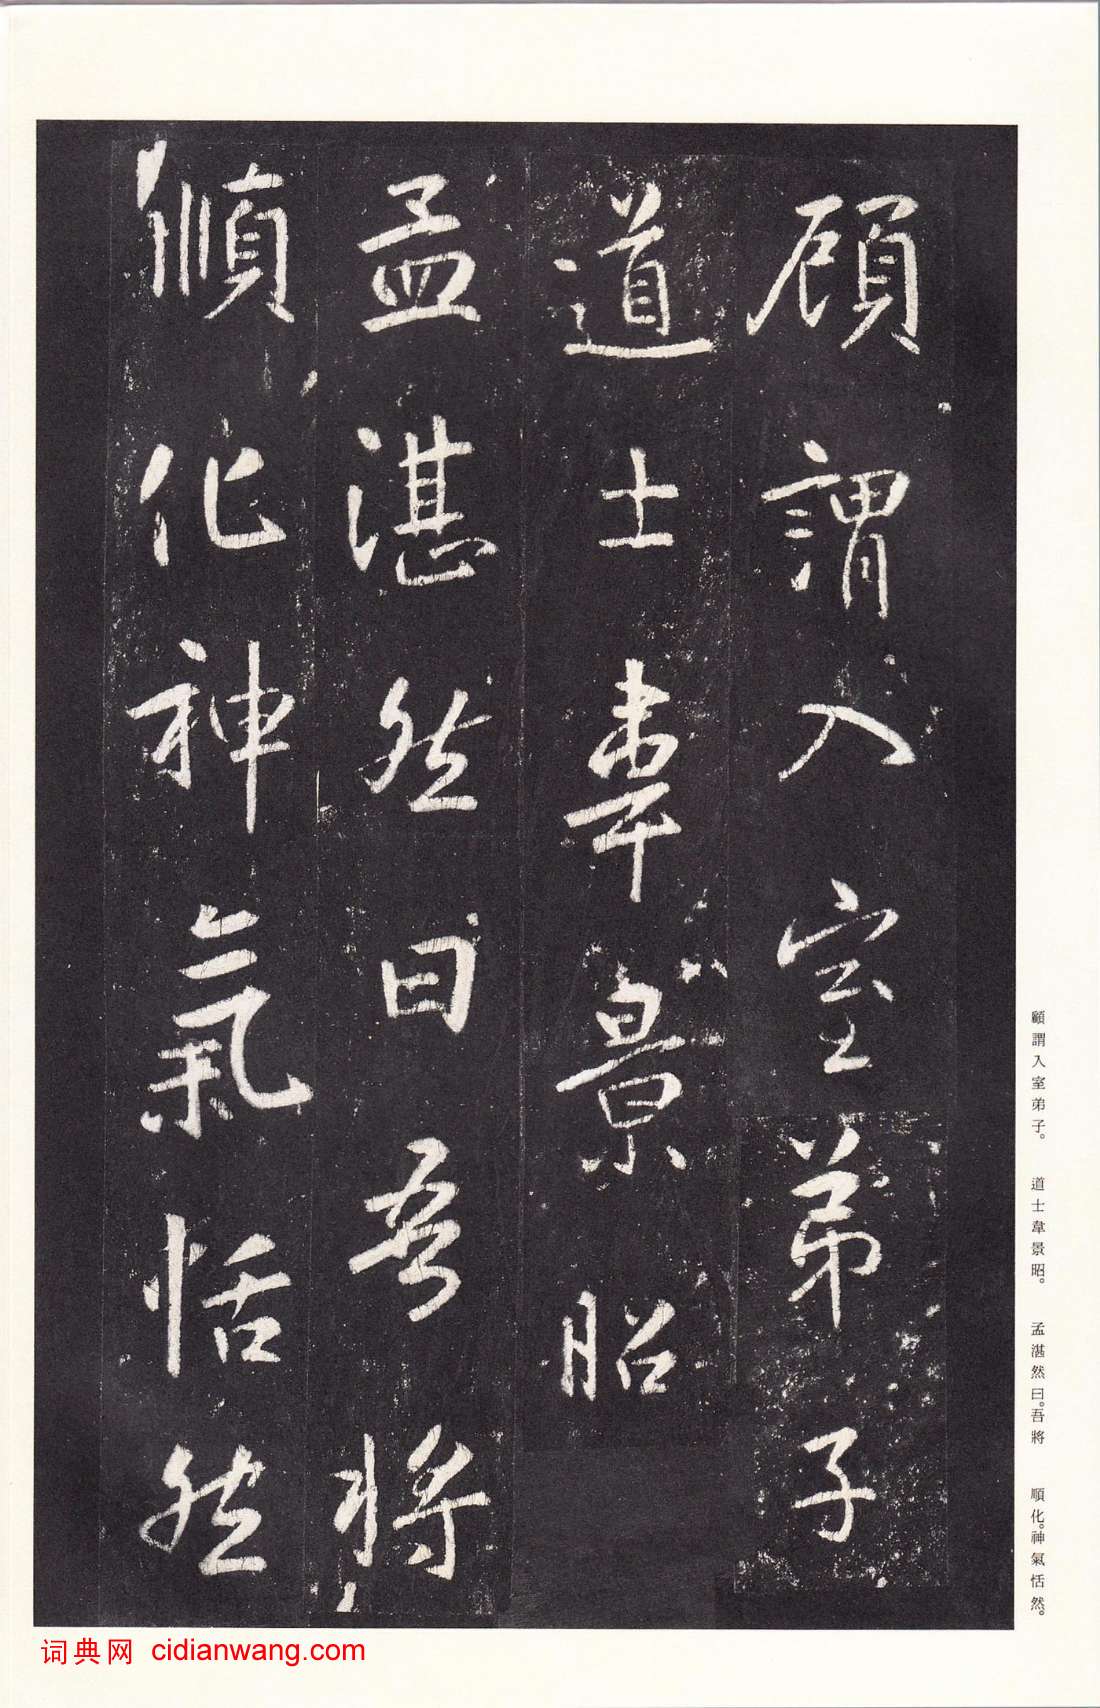 顧謂入室弟子
道士韋景昭
孟湛然曰吾將
順化神氣恬然
顧謂入室弟子。 道士韋景昭。 孟湛然曰。吾將 順化。神氣恬然。
词典网 cidianwang.com